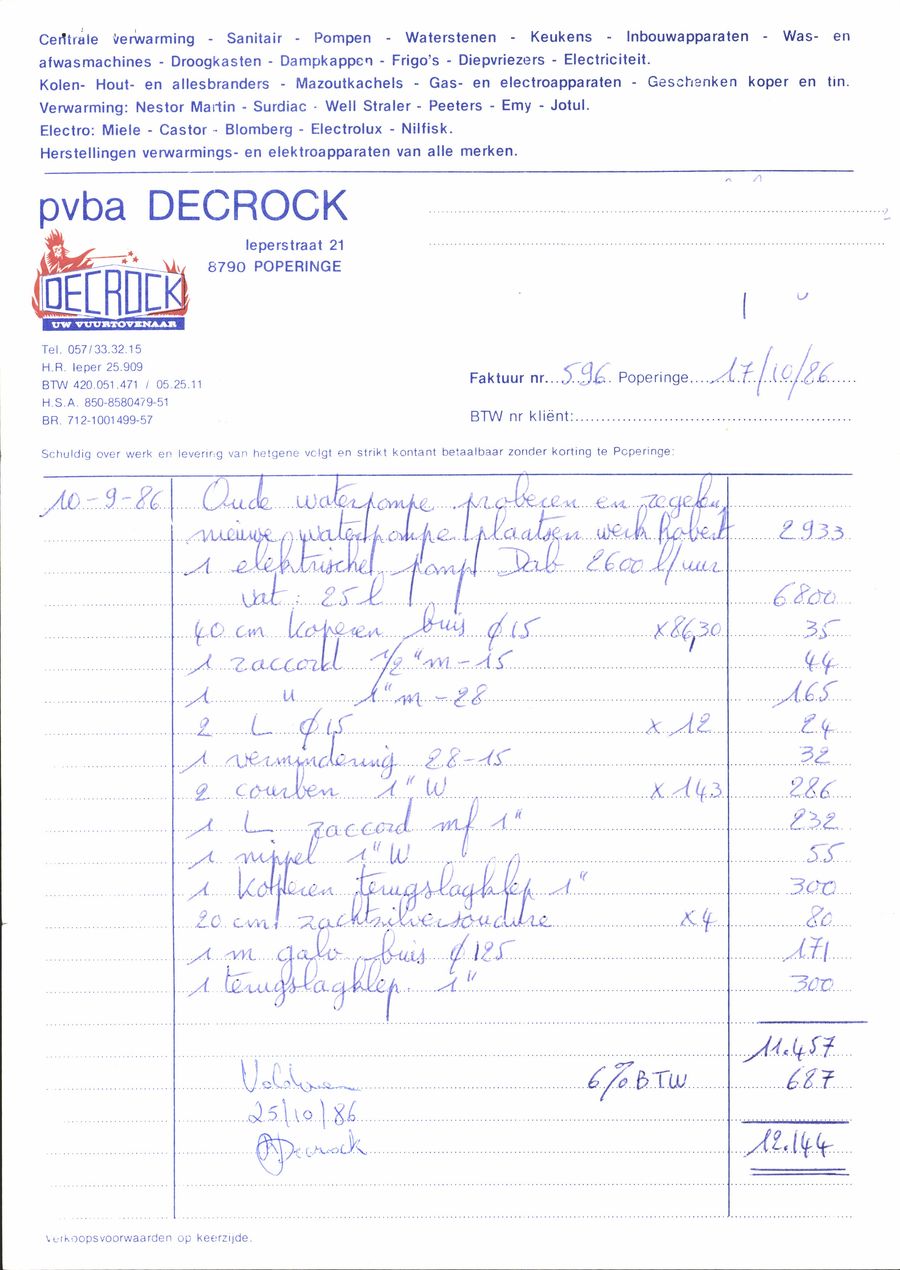 Centrale verwarming - Sanitair - Pompen - Waterstenen - Keukens - Inbouwapparaten - Was- en
afwasmachines - Droogkasten - Dampkappen - Frigo's - Diepvriezers - Electriciteit.
Kolen- Hout- en allesbranders - Mazoutkachels - Gas- en electroapparaten - Geschenken koper en tin.
Verwarming: Nestor Martin - Surdiac - Well Straler - Peeters - Emy - Jotul.
Electro: Miele - Castor - Blomberg - Electrolux - Nilfisk.
Herstellingen verwarmings- en elektroapparaten van alle merken.
pvba DECROCK
Ieperstraat 21
8790 POPERINGE
DECROCK
UW VUURTOVENAAR
Tel. 057/33.32.15
H.R. Ieper 25.909
BTW 420.051.471 / 05.25.11
H.S.A. 850-8580479-51
BR. 712-1001499-57
Faktuur nr. 596 Poperinge 17/10/86
BTW nr kliënt:
Schuldig over werk en levering van hetgene volgt en strikt kontant betaalbaar zonder korting te Poperinge:
10-9-86 Oude waterpompe proberen en regelen,
nieuwe waterpompe plaatsen werk Robert 2933
1 elektrische pomp Dab 2600 l/uur
vat: 25 l 6800
40 cm koperen buis ϕ15 x86,30 35
1 raccord 1/2" m-15 44
1 " 1" m-28 165
2 L ϕ15 x 12 24
1 vermindering 28-15 32
2 courben 1" W x 143 286
1 L raccord mf 1" 232
1 nippel 1" W 55
1 koperen terugslagklep 1" 300
20 cm zachtzilversoudure x4 80
1 m galv buis ϕ125 171
1 terugslagklep. 1" 300
11.457
Voldaan 6% BTW 687
25/10/86
Decrock 12.144
Verkoopsvoorwaarden op keerzijde.